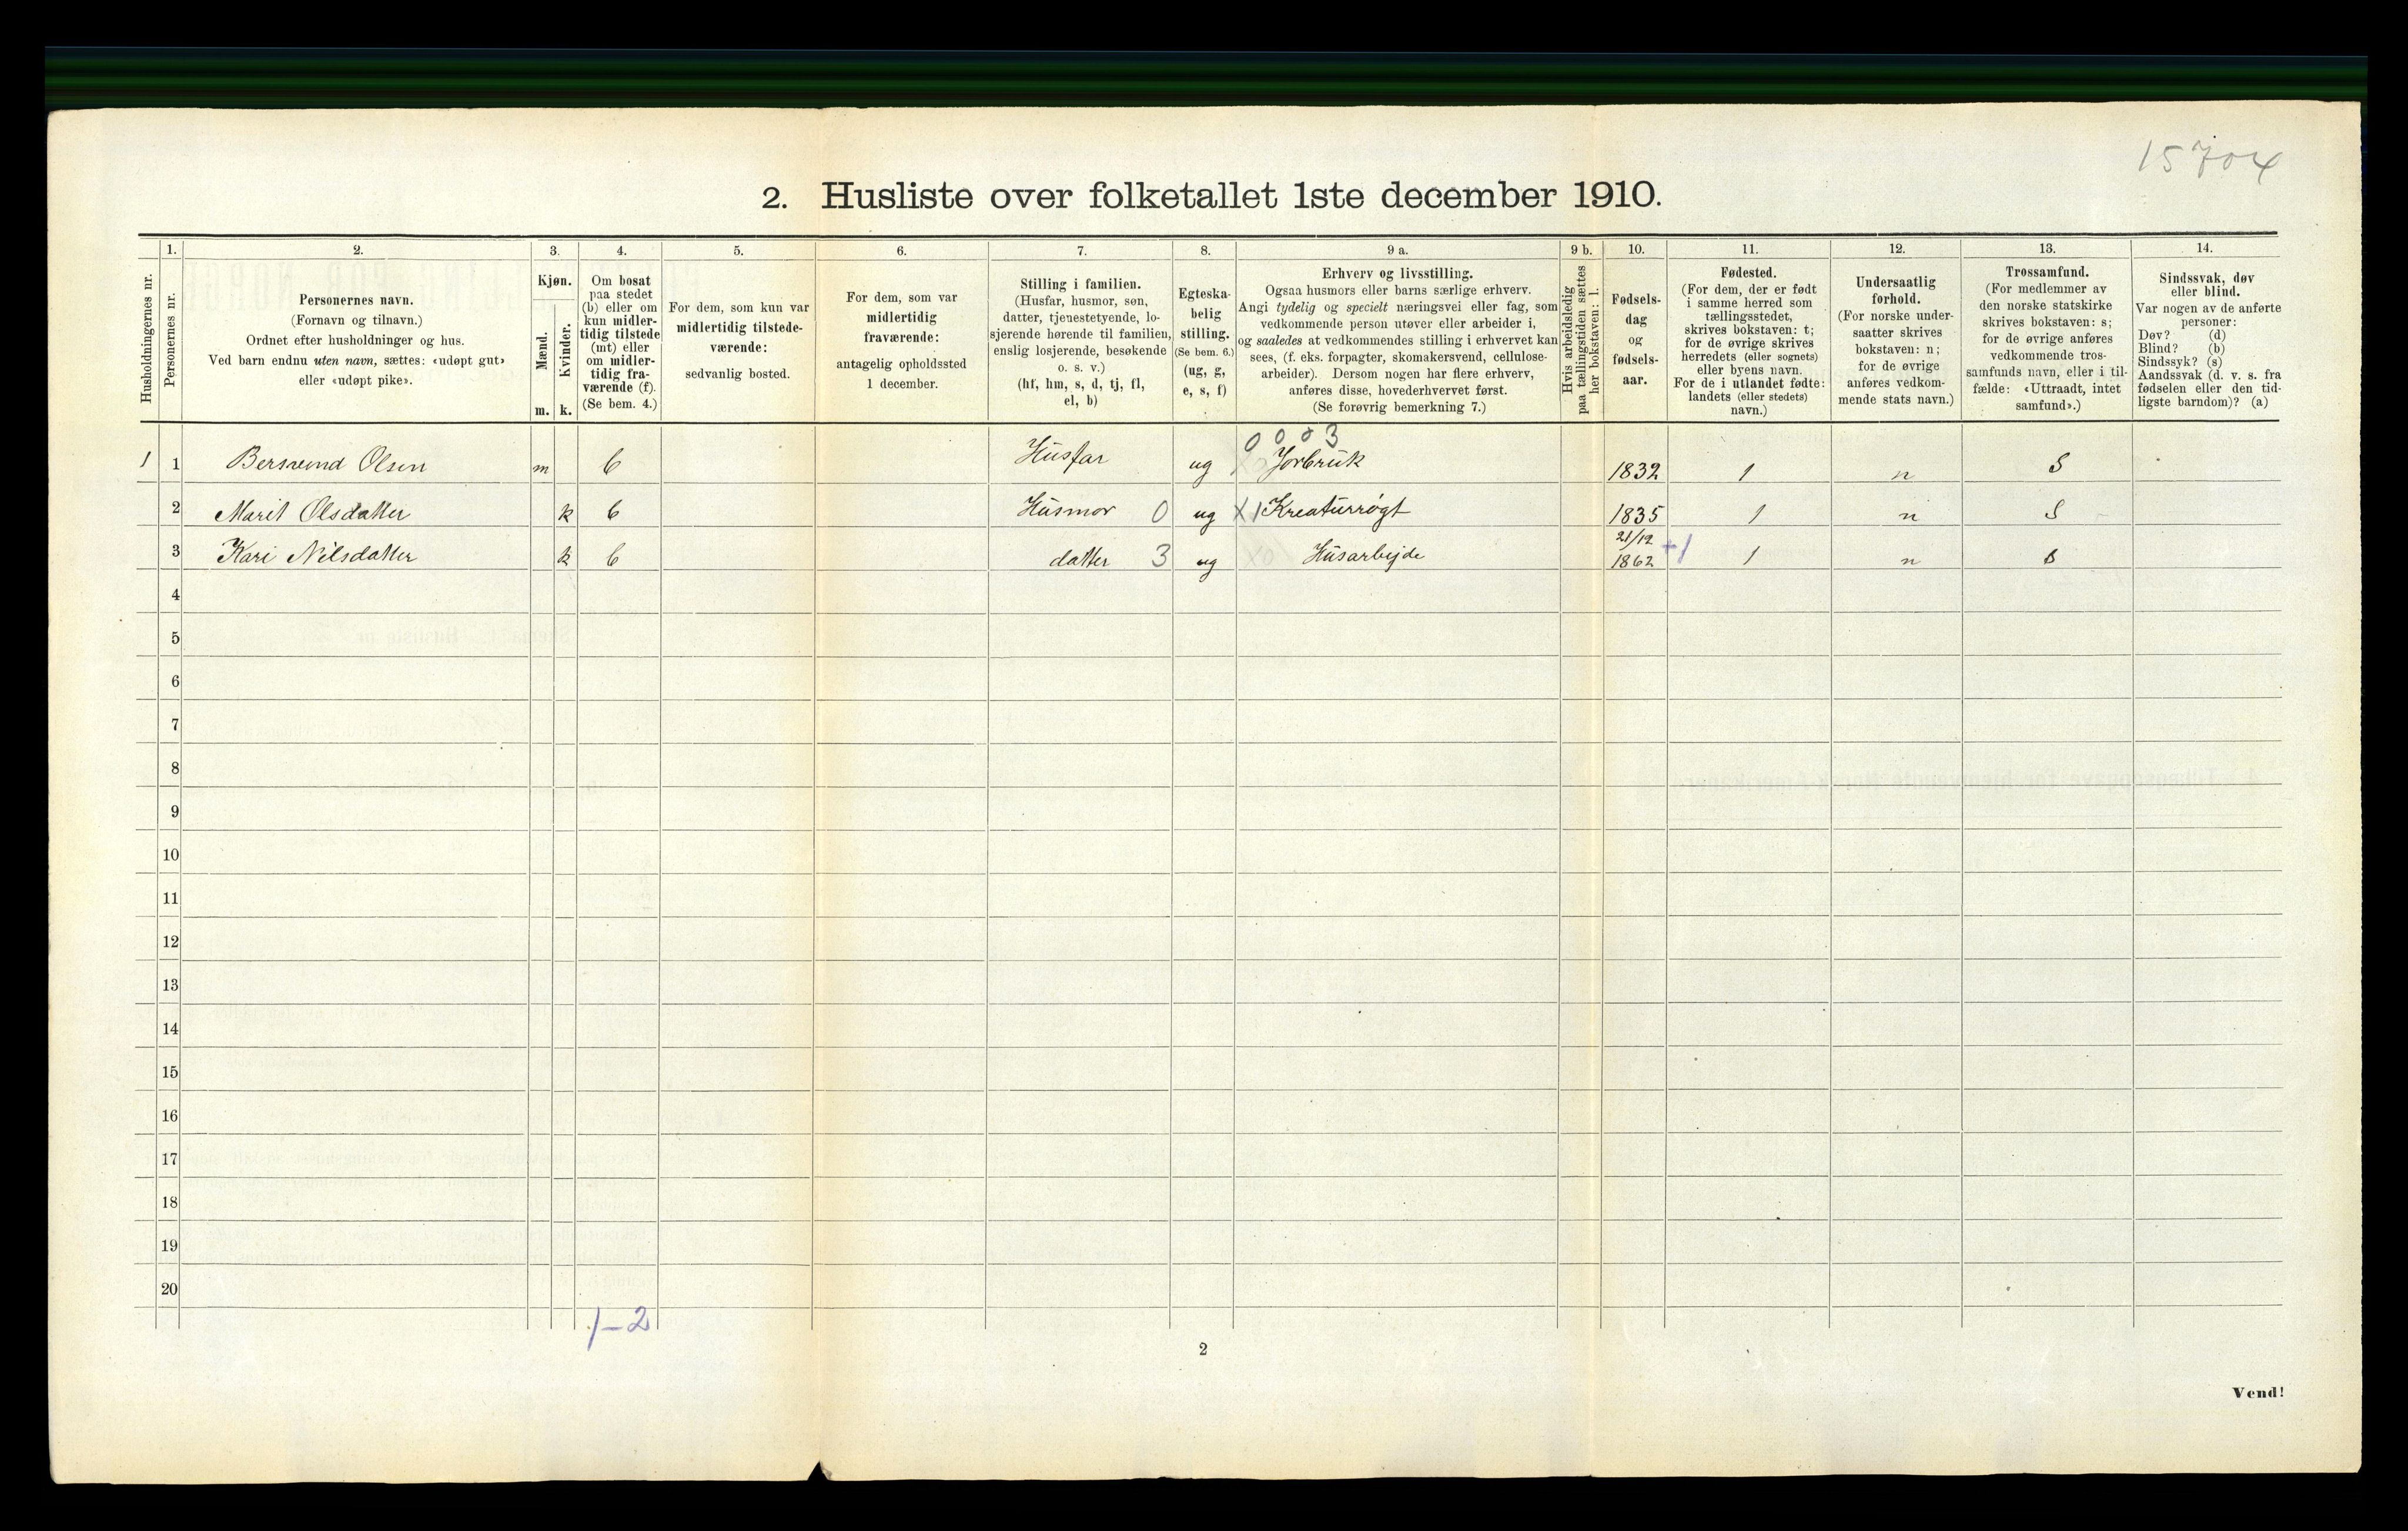 15704
2. Husliste over folketallet 1ste december 1910.
Husholdningernes nr.
1.
Personernes nr.
2.
Personernes navn.
(Fornavn og tilnavn.)
Ordnet efter husholdninger og hus.
Ved barn endnu uten navn, sættes: «udøpt gut»
eller «udøpt pike».
3.
Kjøn.
Mænd.
Kvinder.
m. k.
4.
Om bosat
paa stedet
(b) eller om
kun midler-
tidig tilstede
(mt) eller
om midler-
tidig fra-
værende (f).
(Se bem. 4.)
5.
For dem, som kun var
midlertidig tilstede-
værende:
sedvanlig bosted.
6.
For dem, som var
midlertidig
fraværende:
antagelig opholdssted
1 december.
7.
Stilling i familien.
(Husfar, husmor, søn,
datter, tjenestetyende, lo-
sjerende hørende til familien,
enslig losjerende, besøkende
o. s. v.)
(hf, hm, s, d, tj, fl,
el, b)
8.
Egteska-
belig
stilling.
(Se bem. 6.)
(ug, g,
e, s, f)
9 a.
Erhverv og livsstilling.
Ogsaa husmors eller barns særlige erhverv.
Angi tydelig og specielt næringsvei eller fag, som
vedkommende person utøver eller arbeider i,
og saaledes at vedkommendes stilling i erhvervet kan
sees, (f. eks. forpagter, skomakersvend, cellulose-
arbeider). Dersom nogen har flere erhverv,
anføres disse, hovederhvervet først.
(Se forøvrig bemerkning 7.)
9 b.
Hvis arbeidsledig
paa tællingstiden sættes
her bokstaven: l.
10.
Fødsels-
dag
og
fødsels-
aar.
11.
Fødested.
(For dem, der er født
i samme herred som
tællingsstedet,
skrives bokstaven: t;
for de øvrige skrives
herredets (eller sognets)
eller byens navn.
For de i utlandet fødte:
landets (eller stedets)
navn.)
12.
Undersaatlig
forhold.
(For norske under-
saatter skrives
bokstaven: n;
for de øvrige
anføres vedkom-
mende stats navn.)
13.
Trossamfund.
(For medlemmer av
den norske statskirke
skrives bokstaven: s;
for de øvrige anføres
vedkommende tros-
samfunds navn, eller i til-
fælde: «Uttraadt, intet
samfund».)
14.
Sindssvak, døv
eller blind.
Var nogen av de anførte
personer:
Døv? (d)
Blind? (b)
Sindssyk? (s)
Aandssvak (d. v. s. fra
fødselen eller den tid-
ligste barndom)? (a)
0 0 0 3
1 1 Bersvend Olsen m b Husfar ug Jorbruk 1832 1 n S
2 Marit Olsdatter k b Husmor 0 ug X1 Kreaturrøgt 1835 1 n S
3 Kari Nilsdatter k b datter 3 ug Husarbejde 21/12 1862 +1 1 n S
4
5
6
7
8
9
10
11
12
13
14
15
16
17
18
19
20
1-2
2
Vend!